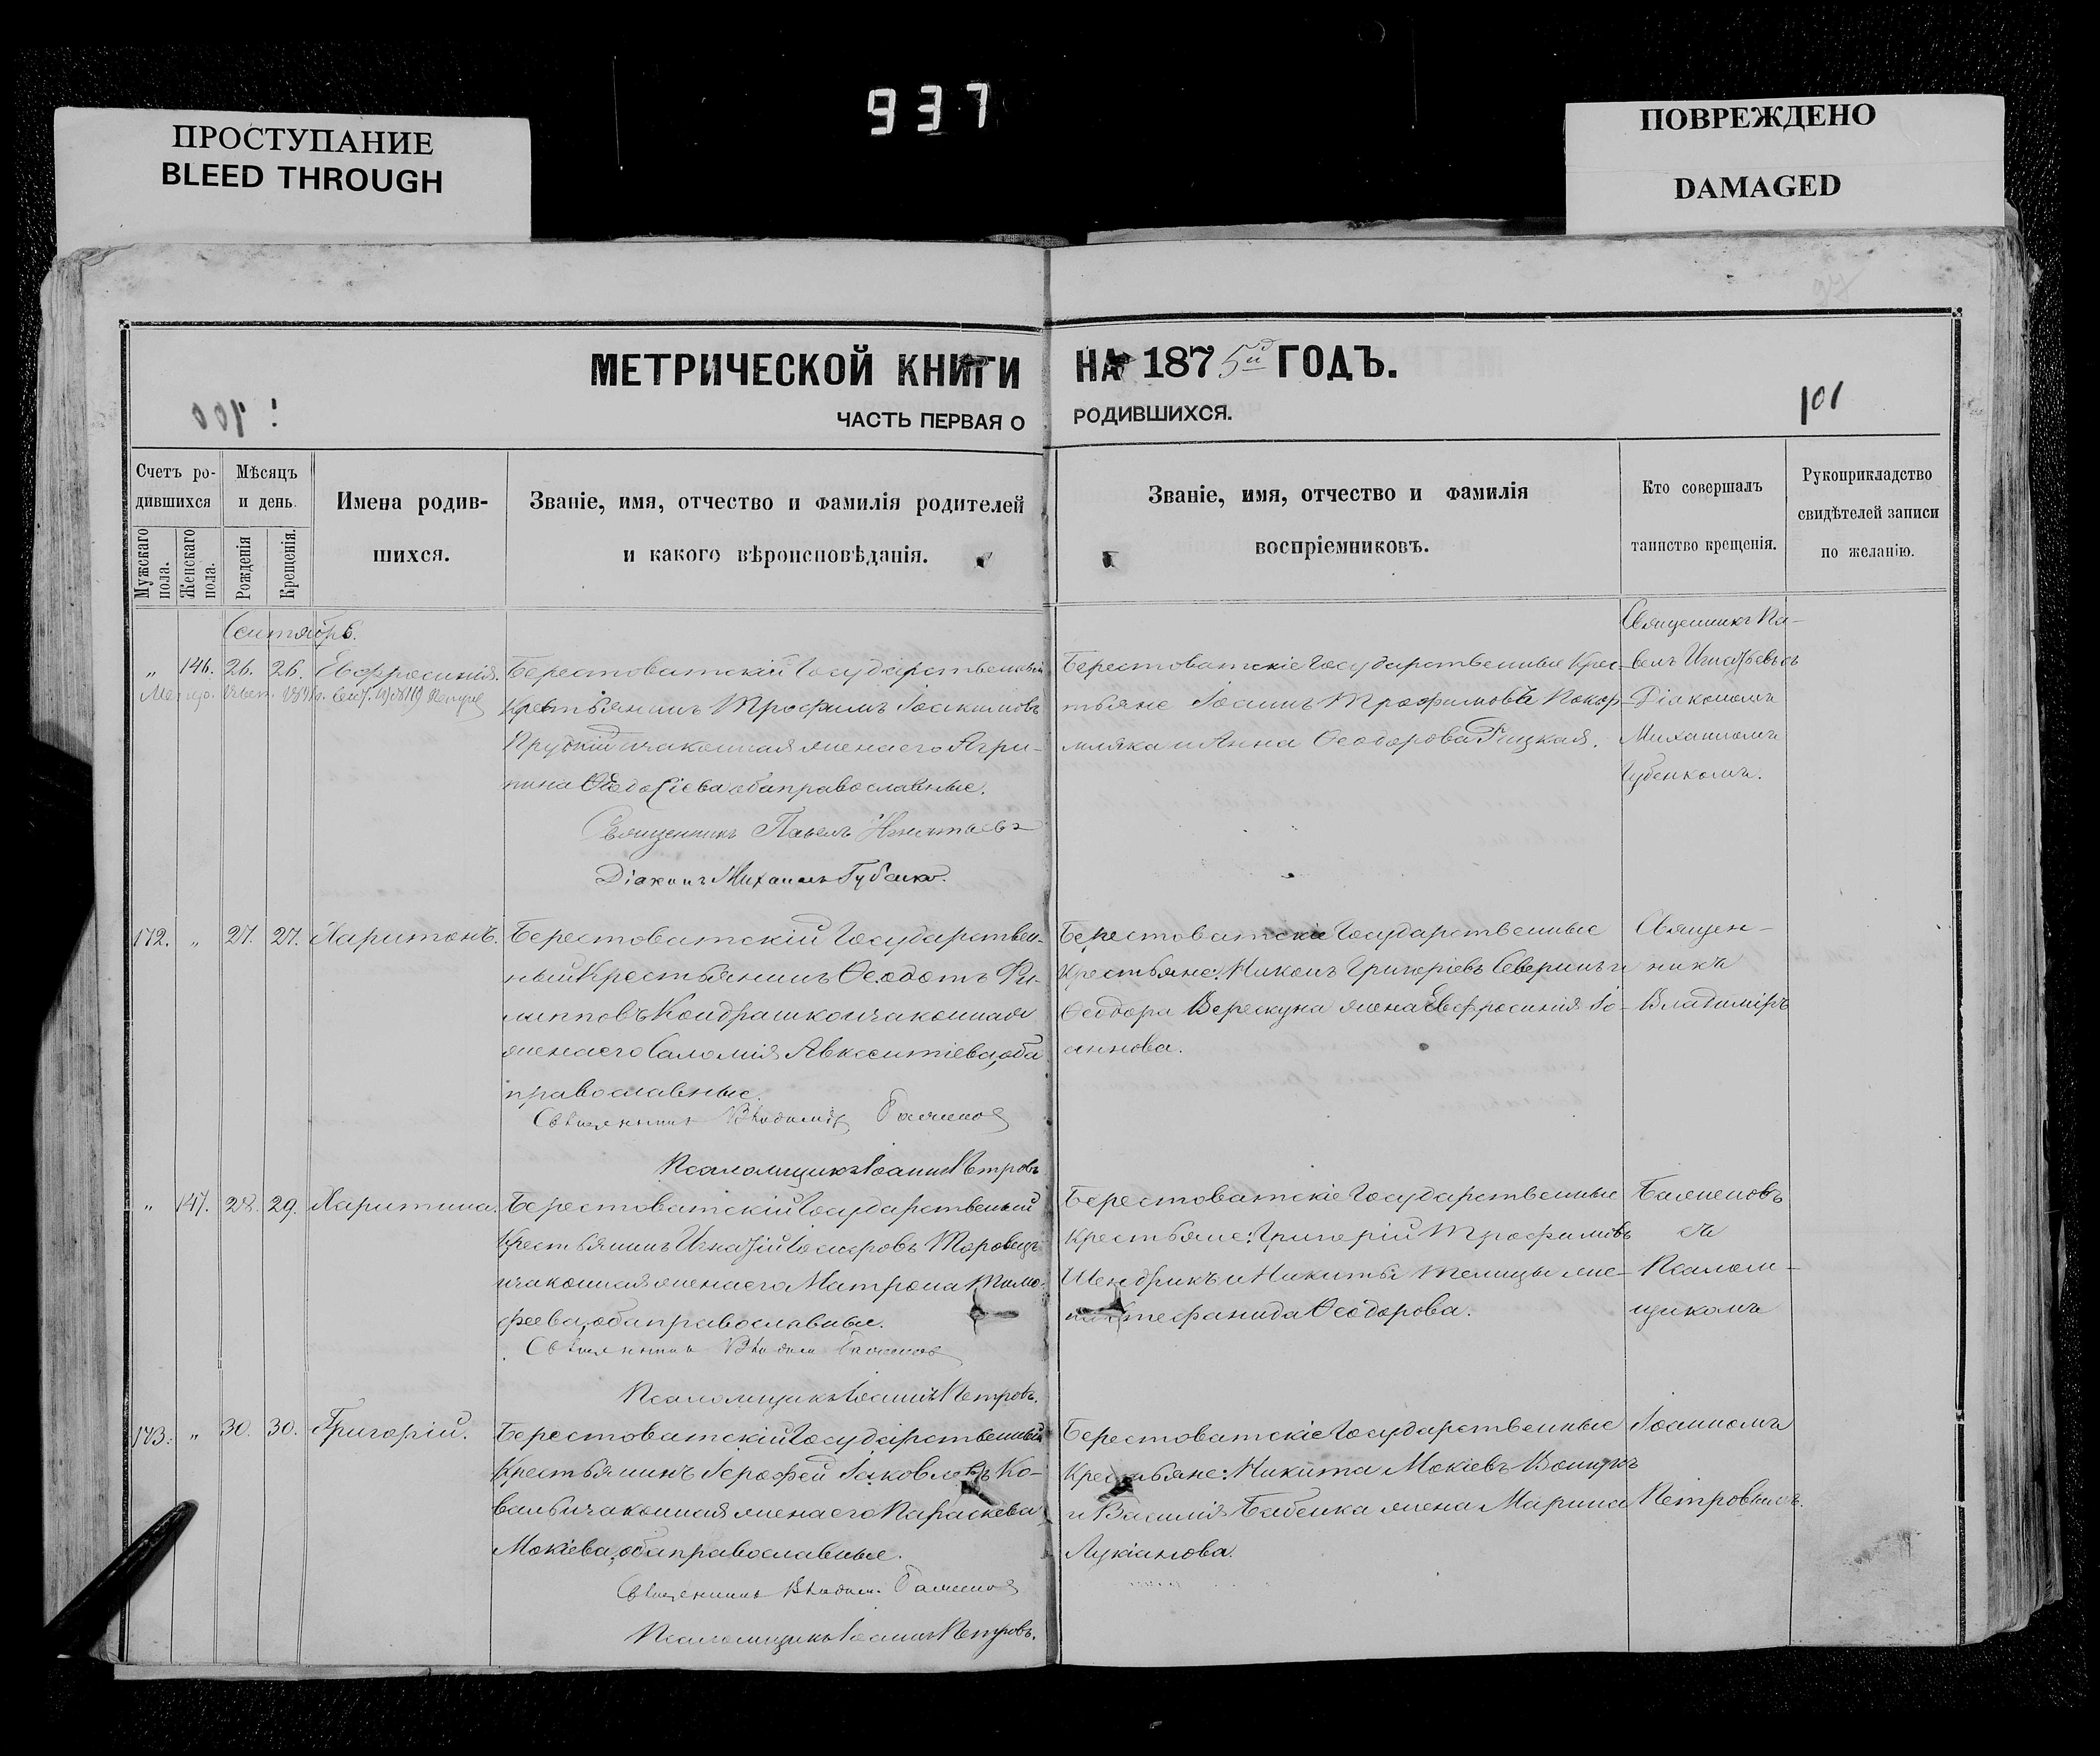 937
ПРОСТУПАНИЕ
BLEED THROUGH
ПОВРЕЖДЕНО
DAMAGED
МЕТРИЧЕСКОЙ КНИГИ НА 1875й ГОДЪ.
ЧАСТЬ ПЕРВАЯ О РОДИВШИХСЯ.
101
Счетъ ро-
дившихся
Мужскаго пола.
Женскаго пола.
Мѣсяцъ
и день.
Рожденія
Крещенія.
Имена родив-
шихся.
Званіе, имя, отчество и фамилія родителей
и какого вѣроисповѣданія.
Званіе, имя, отчество и фамилія
воспріемниковъ.
Кто совершалъ
таинство крещенія.
Рукоприкладство
свидѣтелей записи
по желанію.
Сентябрь.
„ 146. 26. 26. Евфросинія.
Берестоватскій Государственный
Крестьянинъ Трофимъ Іоакимовъ
Прудкій и законная жена его Агри-
пина Ѳеодосіева оба православные.
Священникъ Павелъ Игнатьевъ
Діаконъ Михаилъ Губенко.
Берестоватскіе Государственные Крес-
тьяне Іоаннъ Трофимовъ Покор-
мляка и Анна Ѳеодорова Рицкая.
Священникъ Па-
велъ Игнатьевъ съ
Діакономъ
Михаиломъ
Губенкомъ.
172. „ 27. 27. Харитонъ.
Берестоватскій Государствен-
ный Крестьянинъ Ѳеодотъ Фи-
липповъ Кондрашко и законная
жена его Саломія Авксентіева, оба
православные.
Священникъ Владиміръ Баженовъ
Псаломщикъ Іоаннъ Петровъ
Берестоватскіе Государственные
Крестьяне: Никонъ Григоріевъ Северинъ и
Ѳеодора Верескуна жена Евфросинія Іо-
аннова.
Священ-
никъ
Владиміръ
„ 147. 28. 29. Харитина.
Берестоватскій Государственный
Крестьянинъ Игнатій Іосифовъ Торовецъ
и законная жена его Матрона Тимо-
феева, оба православные.
Священникъ Владим Баженовъ
Псаломщикъ Іоаннъ Петровъ.
Берестоватскіе Государственные
Крестьяне: Григорій Трофимовъ
Шендрикъ и Никиты Телицы же-
на Стефанида Ѳеодорова.
Баженовъ
съ
Псалом-
щикомъ
173. „ 30. 30. Григорій.
Берестоватскій Государственный
Крестьянинъ Іерофей Іаковлевъ Ко-
валь и законная жена его Параскева
Мокіева, оба православные.
Священникъ Владим. Баженовъ
Псаломщикъ Іоаннъ Петровъ.
Берестоватскіе Государственные
Крестьяне: Никита Мокіевъ
и Василія Бабенка жена Марина
Лукіанова.
Іоанномъ
Петровымъ.